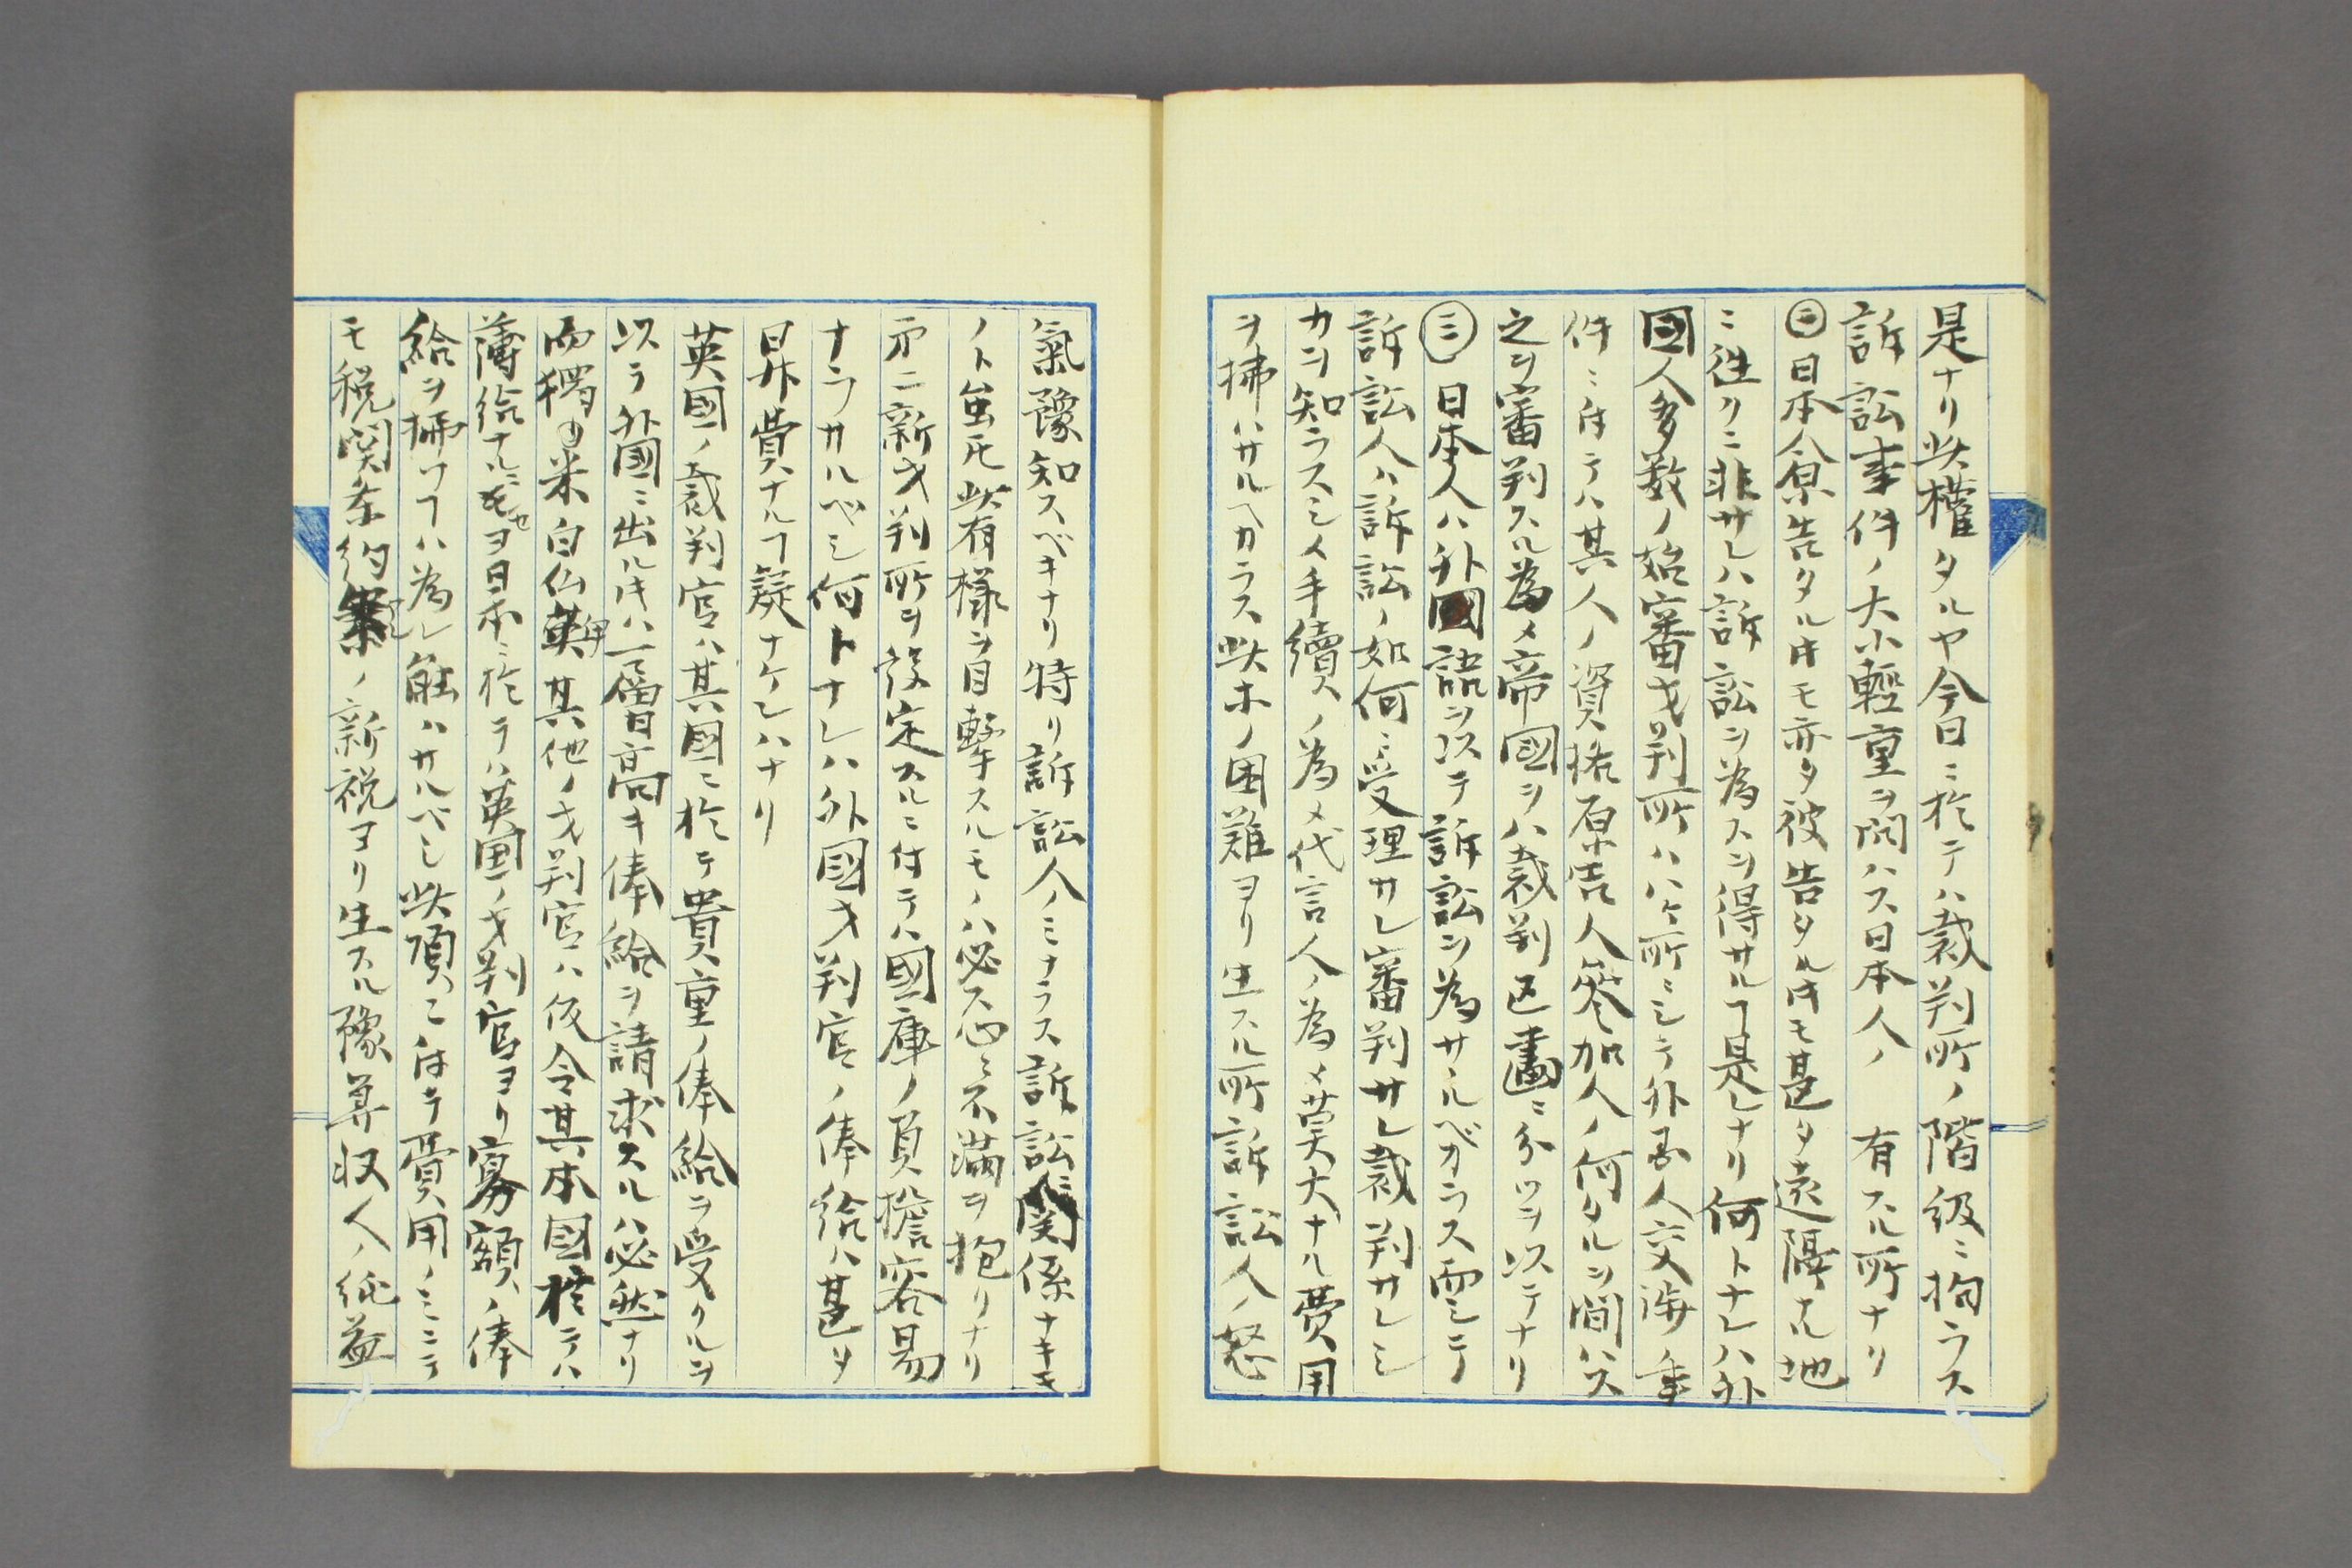 是ナリ此權タルヤ今日ニ於テハ裁判所ノ階級ニ拘ラス
訴訟事件ノ大小輕重ヲ問ハス日本人ノ 有スル所ナリ
㊁日本人原告タル𪜈モ亦タ彼告タル𪜈モ甚タ遠隔ナル地
ニ徃クニ非サレハ訴訟ヲ為スヲ得サルヿ是レナリ何トナレハ外
國人多数ノ始審才判所ハ八ケ所ニシテ外国人交渉ノ事
件ニ付テハ其人ノ資格原告人參加人ノ何タルヲ問ハス
之ヲ審判スル為メ帝國ヲ八裁判区畫ニ分ツヲ以テナリ
㊂日本人ハ外國語ヲ以テ訴訟ヲ為サヽルベカラス而シテ
訴訟人ハ訴訟ノ如何ニ受理サレ審判サレ裁判サレシ
カヲ知ラスシメ手續ノ為メ代言人ノ為メ莫大ナル費用
ヲ拂ハサルヘカラス此ホノ困難ヨリ生スル所訴訟人ノ怒
氣豫知スベキナリ特リ訴訟人ノミナラス訴訟ニ関係ナキモ
ノト虽𪜈此有様ヲ目撃スルモノハ必ス心ニ不滿ヲ抱クナリ
第二新才判所ヲ設定スルニ付テハ國庫ノ負擔容易
ナラサルベシ何トナレハ外國才判官ノ俸給ハ甚タ
昂費ナルヿ疑ナケレハナリ
英國ノ裁判官ハ其國ニ於テ貴重ノ俸給ヲ受クルヲ
以テ外國ニ出ル𪜈ハ一層高キ俸給ヲ請求スルハ必然ナリ
而獨米白仏伊其他ノ才判官ハ仮令其本國於テハ
薄給ナルニモセヨ日本ニ於テハ英国ノ才判官ヨリ寡額ノ俸
給ヲ拂フヿハ為シ能ハサルベシ此項ニ付キ費用ノミニテ
モ税関条約ノ新税ヨリ生スル豫算収入ノ純益